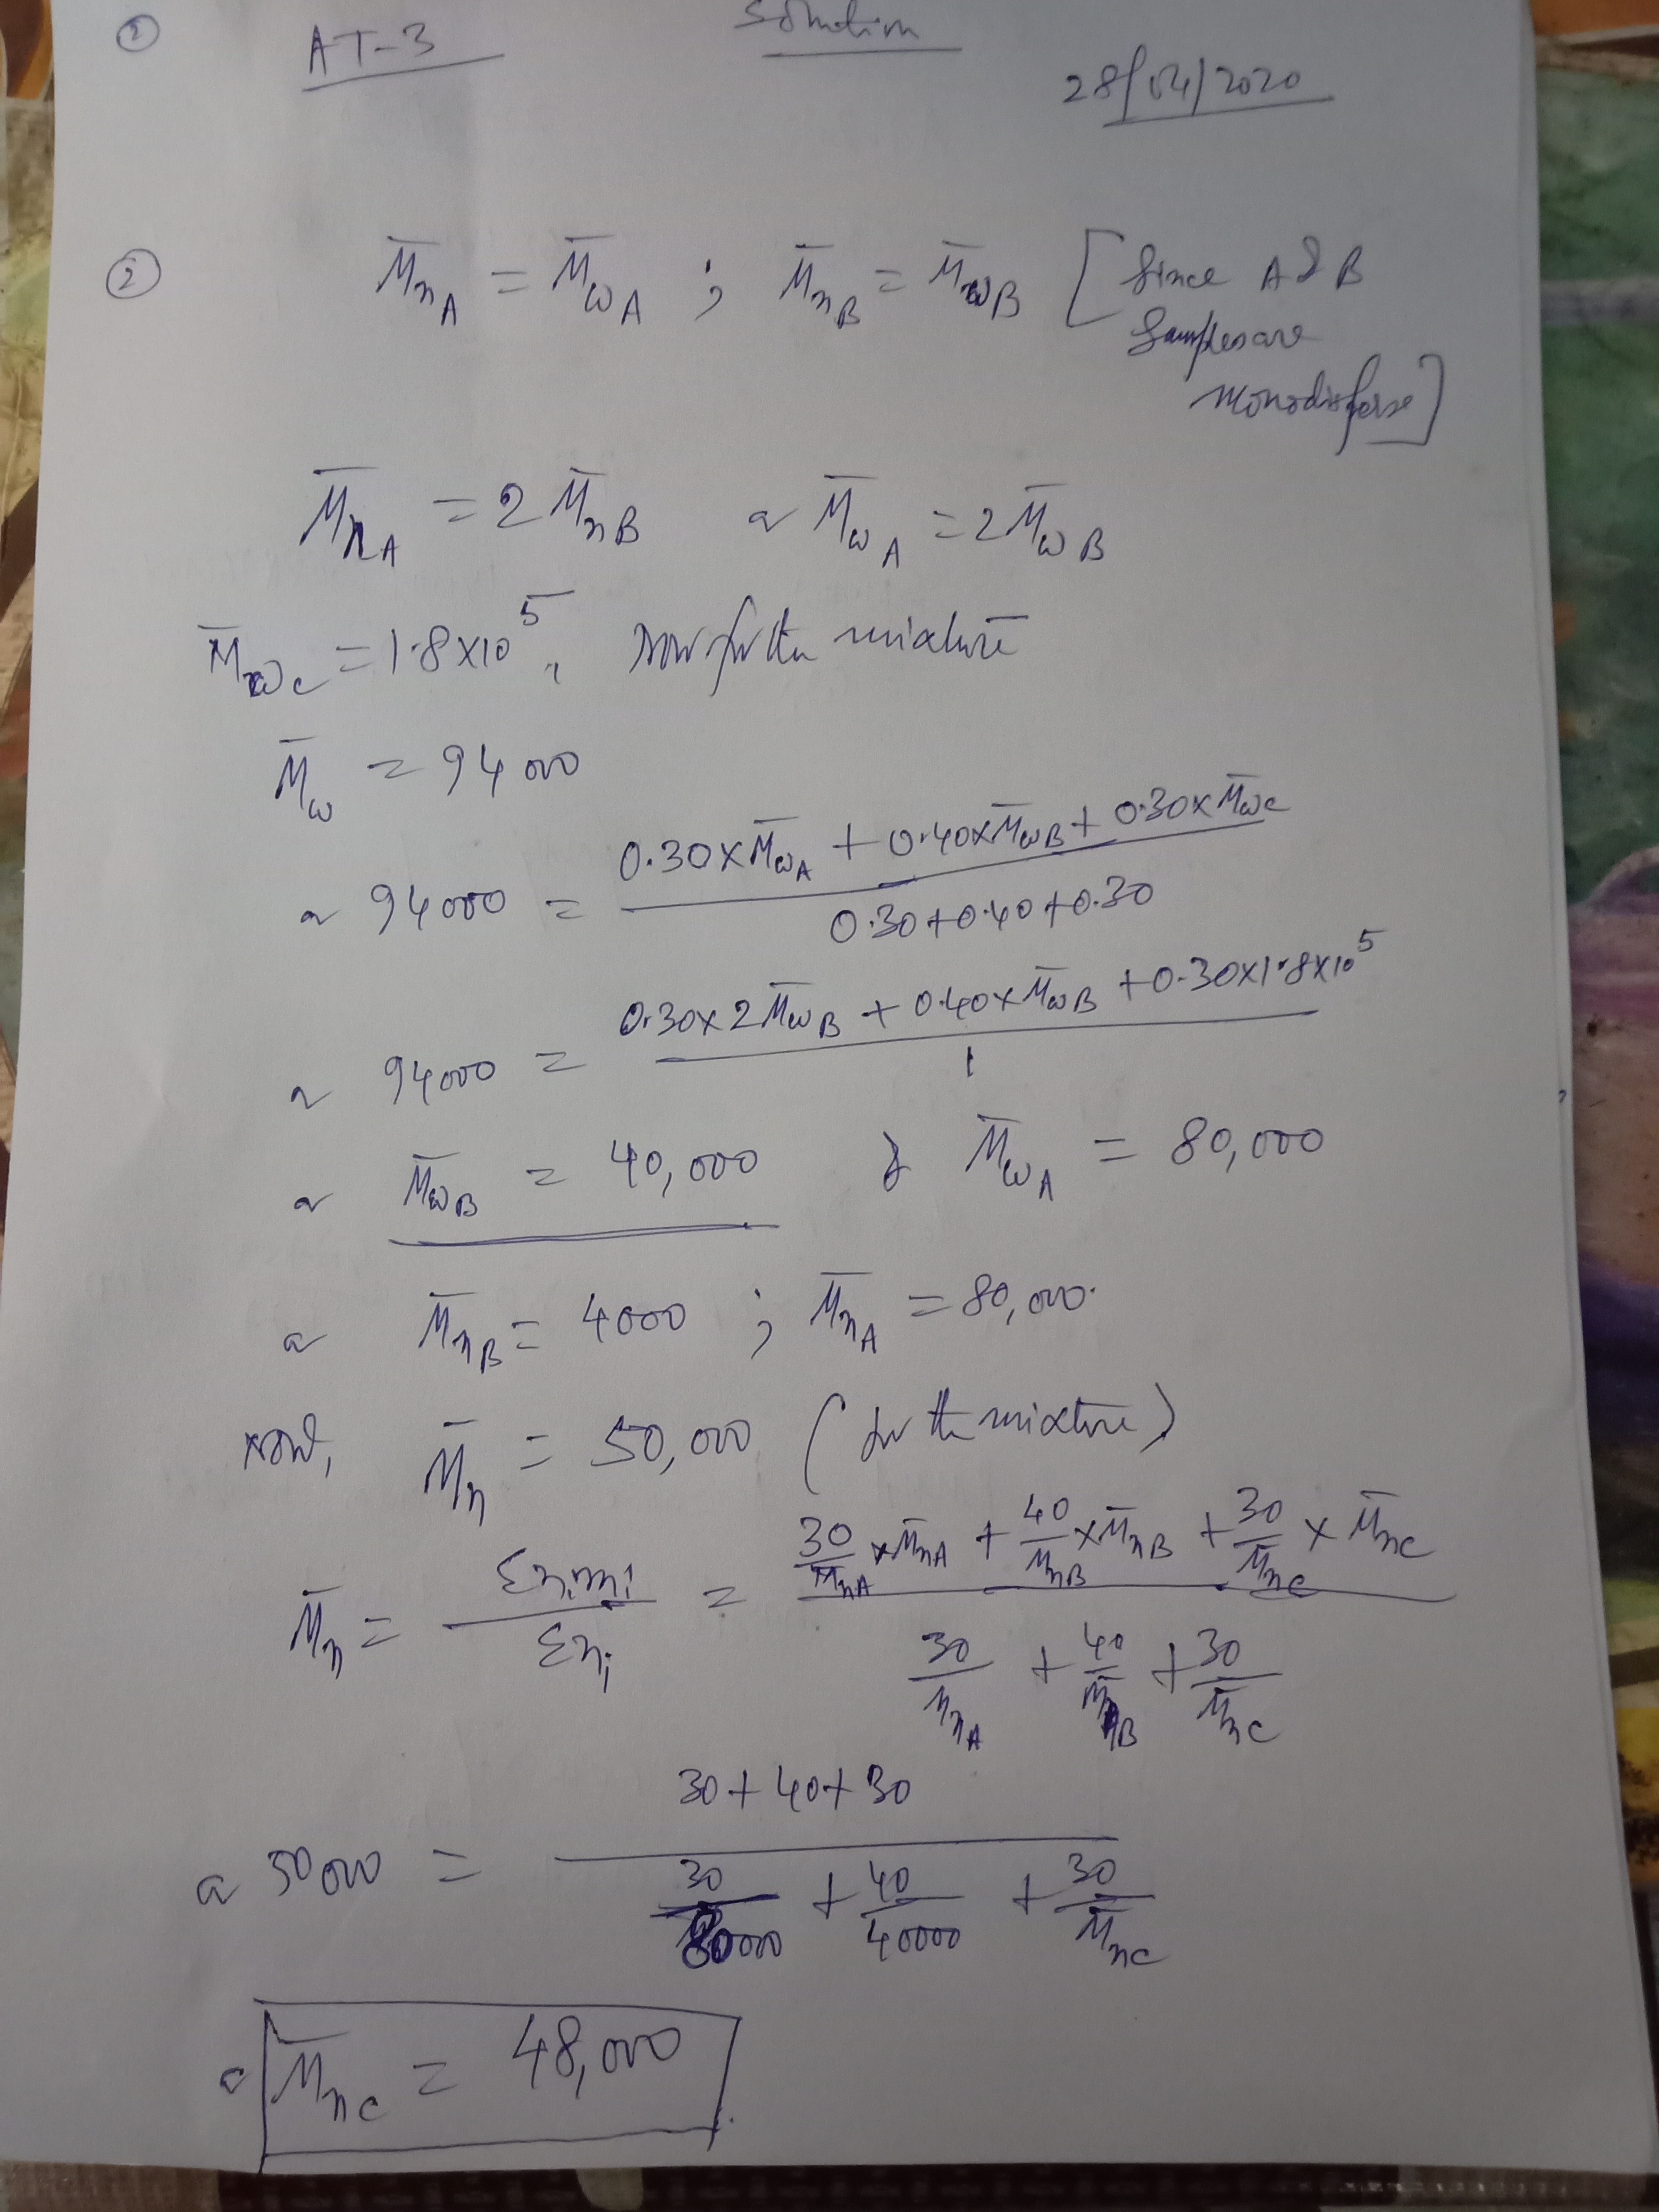 ① AT-3 Solution
28/04/2020
② M̄nA = M̄wA ; M̄nB = M̄wB [Since A & B
Samples are
monodisperse]
M̄nA = 2 M̄nB or M̄wA = 2 M̄wB
M̄wC = 1.8 × 10⁵, now for the mixture
M̄w = 94000
or 94000 = (0.30 × M̄wA + 0.40 × M̄wB + 0.30 × M̄wC) / (0.30 + 0.40 + 0.30)
or 94000 = (0.30 × 2 M̄wB + 0.40 × M̄wB + 0.30 × 1.8 × 10⁵) / 1
or M̄wB = 40,000 & M̄wA = 80,000
or M̄nB = 4000 ; M̄nA = 80,000.
now, M̄n = 50,000 (for the mixture)
M̄n = Σnimi / Σni = (30/M̄nA × M̄nA + 40/M̄nB × M̄nB + 30/M̄nC × M̄nC) / (30/M̄nA + 40/M̄nB + 30/M̄nC)
or 50000 = (30 + 40 + 30) / (30/80000 + 40/40000 + 30/M̄nC)
or M̄nC = 48,000